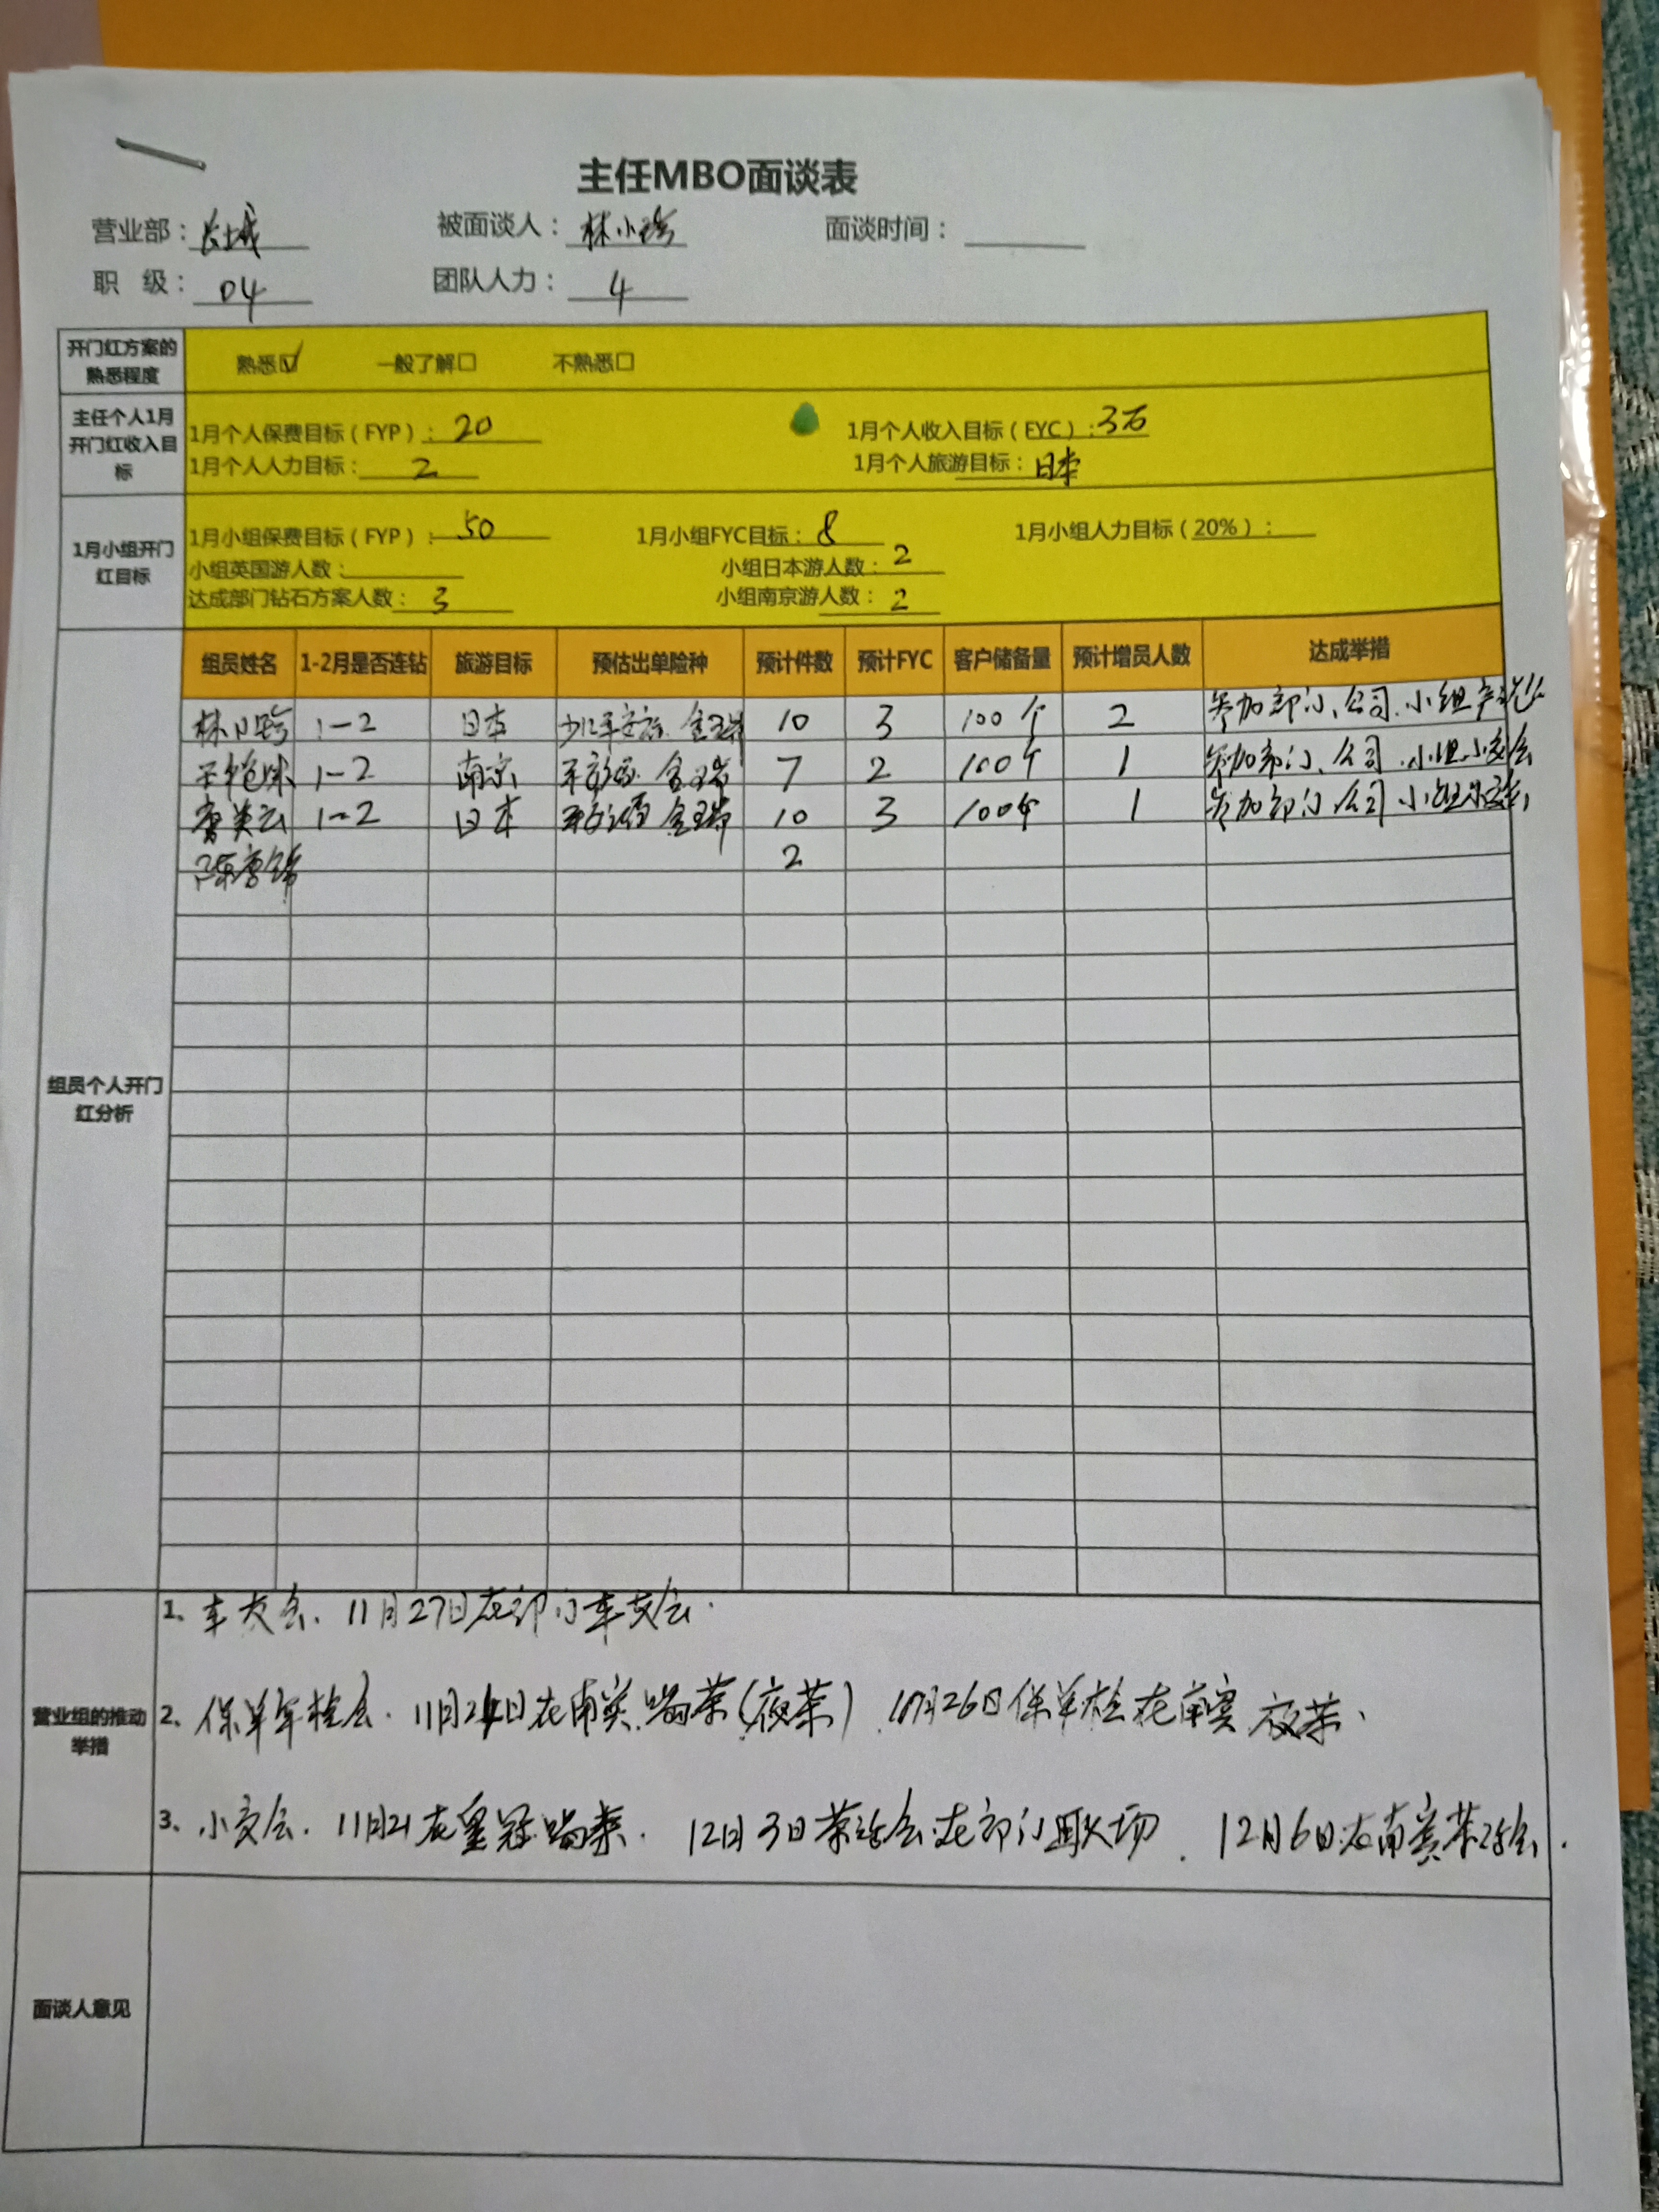 主任MBO面谈表
营业部：长城 被面谈人：林小玲 面谈时间：
职 级：04 团队人力：4
开门红方案的熟悉程度 熟悉☑ 一般了解□ 不熟悉□
主任个人1月开门红收入目标
1月个人保费目标（FYP）：20 1月个人收入目标（FYC）：3万
1月个人人力目标：2 1月个人旅游目标：日本
1月小组开门红目标
1月小组保费目标（FYP）：50 1月小组FYC目标：8 1月小组人力目标（20%）：
小组英国游人数： 小组日本游人数：2
达成部门钻石方案人数：3 小组南京游人数：2
组员个人开门红分析
组员姓名 1-2月是否连钻 旅游目标 预估出单险种 预计件数 预计FYC 客户储备量 预计增员人数 达成举措
1-2 日本 10 3 100个 2 参加部门、公司、小组
1-2 南京 7 2 100个 1 参加部门、公司、小组小交会
1-2 日本 10 3 100个 1 参加部门公司小组
2
营业组的推动举措
1、车友会、11月27日在部门车友会.
2、保单年检会. 11月24日在南宾喝茶（夜茶） 月26日保单检在南宾夜茶、
3、小交会. 11月21在皇冠喝茶. 12月3日茶话会在部门职场. 12月6日在南宾茶话会.
面谈人意见